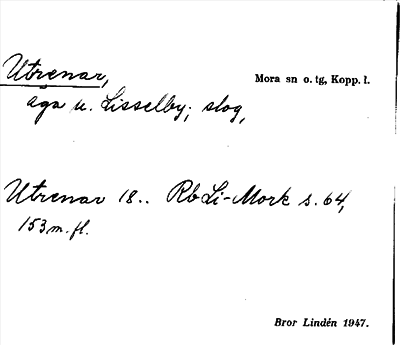 Utrenar,
Mora sn o. tg, Kopp. l.
äga u. Lisselby; slog,
Utrenar 18.. Rb Li-Mork s. 64,
153 m. fl.
Bror Lindén 1947.